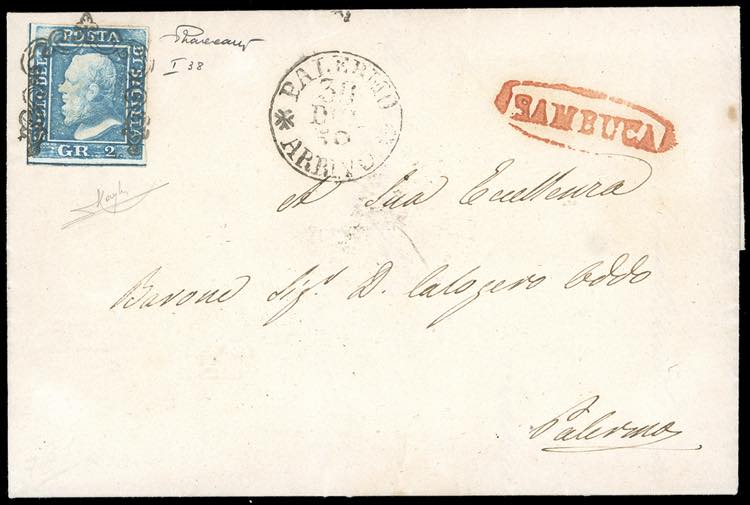 POSTA
BOLLO DELLA
DI SICILIA
GR. 2
I 38
PALERMO
DIC
ARRIVO
SAMBUCA
A Sua Eccellenza
Barone Sig.r D. Calogero Oddo
Palermo